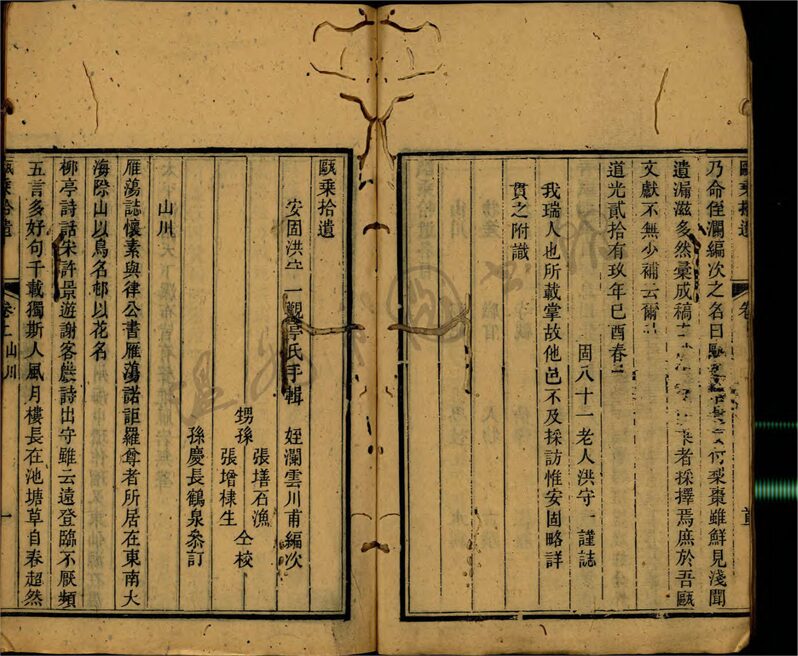 甌乘拾遺
卷
乃命侄瀾編次之名曰甌乘拾遺 何梨棗雖鮮見淺聞
遺漏滋多然彙成稿 來者採擇焉庶於吾甌
文獻不無少補云爾
道光貳拾有玖年己酉春
固八十一老人洪守一謹誌
我瑞人也所載掌故他邑不及採訪惟安固略詳
貫之附識
甌乘拾遺
安固洪守一觀亭氏手輯 姪瀾雲川甫編次
甥孫 張墡石漁 張增棣生 仝校
孫慶長鶴泉叅訂
山川
雁蕩誌懷素與律公書雁蕩諾詎羅尊者所居在東南大
海際山以鳥名邨以花名
柳亭詩話宋許景遊謝客巖詩出守雖云遠登臨不厭頻
五言多好句千載獨斯人風月樓長在池塘草自春超然
甌乘拾遺
卷上山川
一